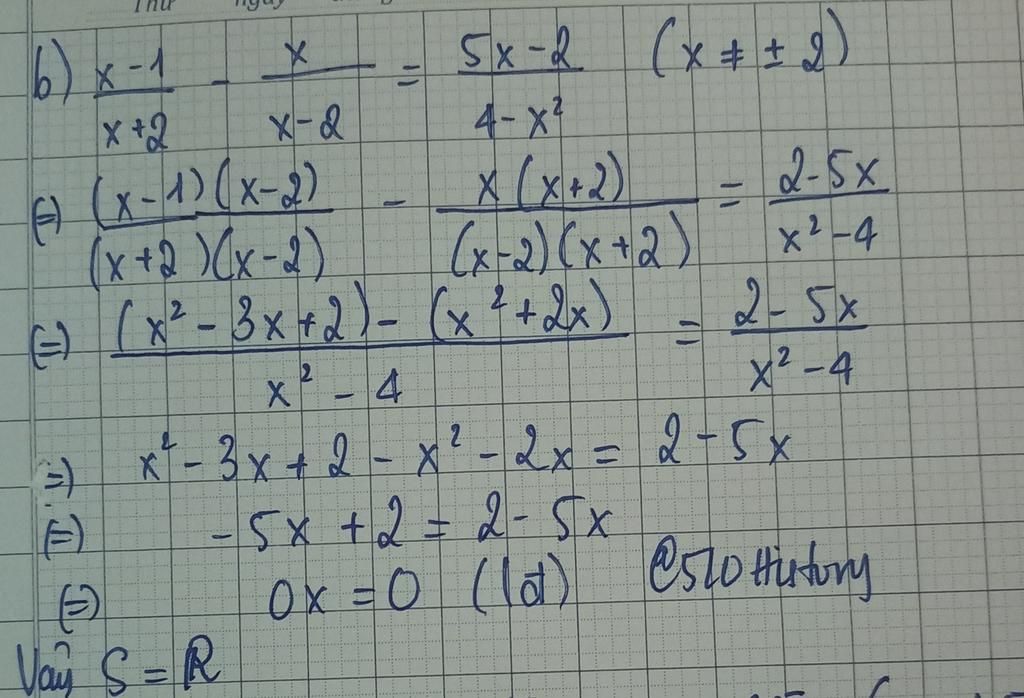 Thứ ngày
b) \frac{x-1}{x+2} - \frac{x}{x-2} = \frac{5x-2}{4-x²} (x ≠ ± 2)
(=) \frac{(x-1)(x-2)}{(x+2)(x-2)} - \frac{x(x+2)}{(x-2)(x+2)} = \frac{2-5x}{x²-4}
(=) \frac{(x²-3x+2)-(x²+2x)}{x²-4} = \frac{2-5x}{x²-4}
=) x²-3x+2-x²-2x = 2-5x
(=) -5x+2 = 2-5x
(=) 0x = 0 (lđ) @520History
Vậy S = R